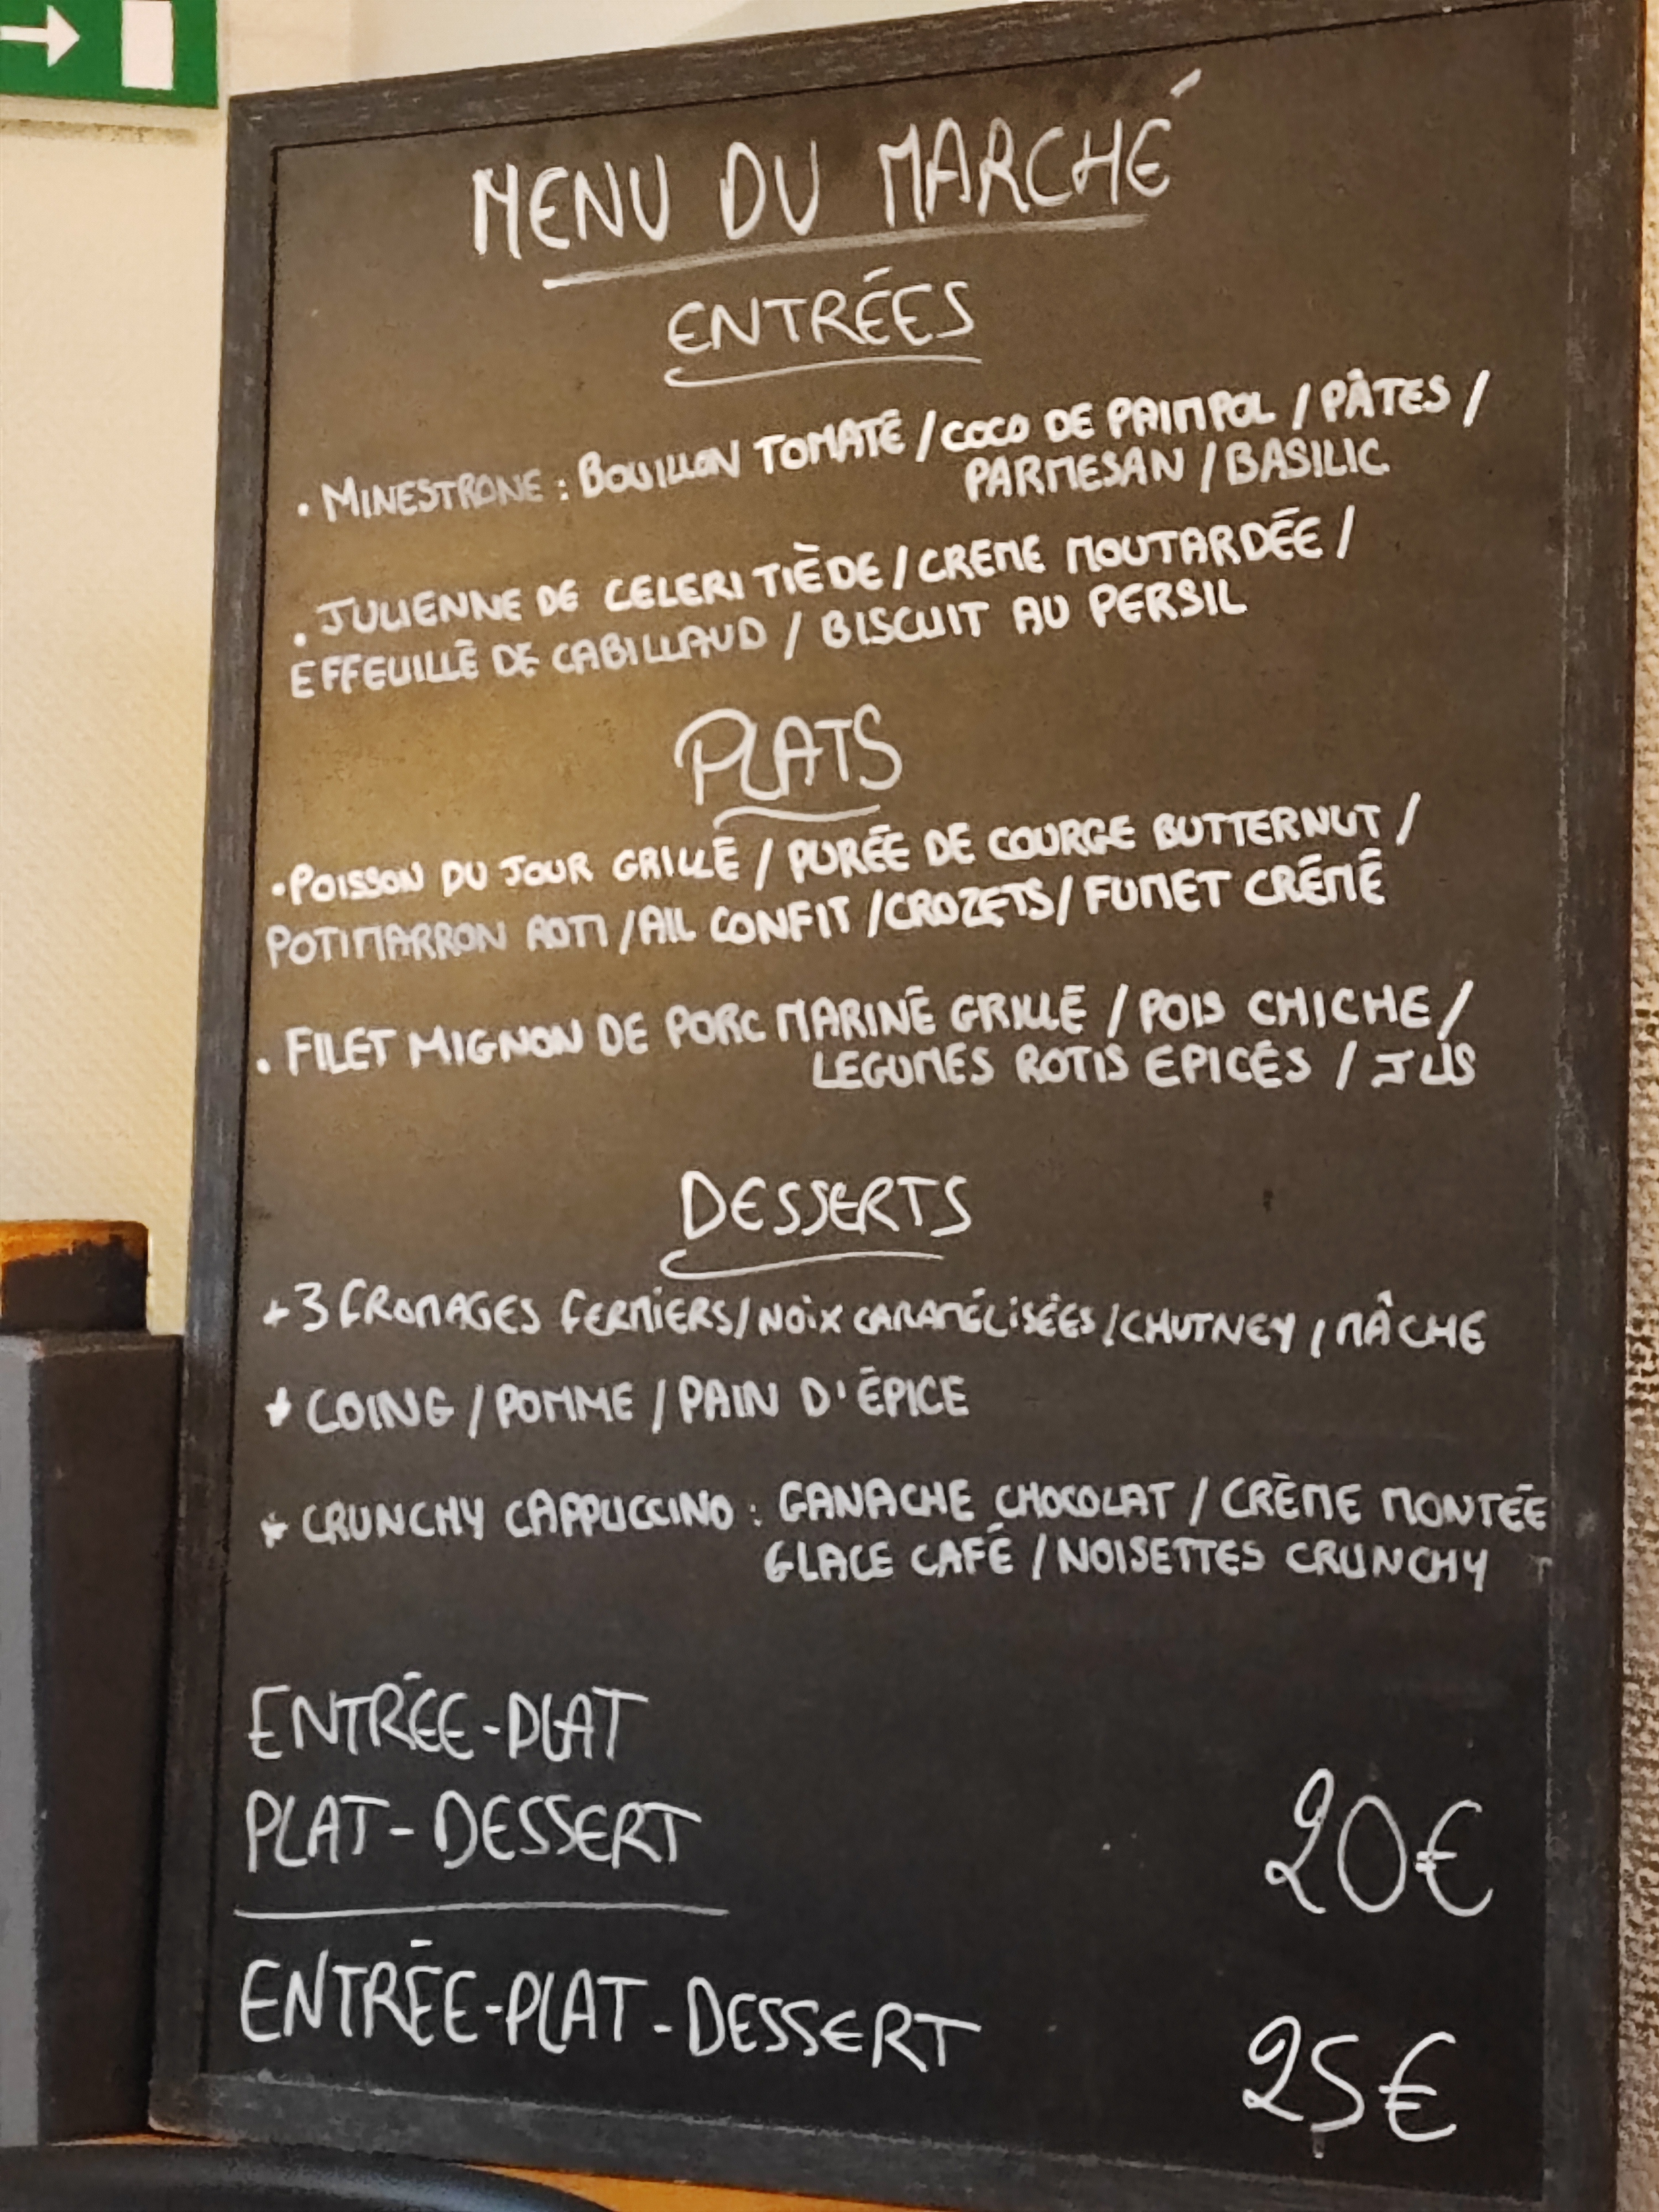 MENU DU MARCHÉ
ENTRÉES
• MINESTRONE : BOUILLON TOMATE / COCO DE PAIMPOL / PÂTES /
PARMESAN / BASILIC
• JULIENNE DE CELERI TIÈDE / CREME MOUTARDÉE /
EFFEUILLÉ DE CABILLAUD / BISCUIT AU PERSIL
PLATS
• POISSON DU JOUR GRILLÉ / PURÉE DE COURGE BUTTERNUT /
POTIMARRON ROTI / AIL CONFIT / CROZETS / FUMET CRÉMÉ
• FILET MIGNON DE PORC MARINÉ GRILLÉ / POIS CHICHE /
LEGUMES ROTIS EPICÉS / JUS
DESSERTS
+ 3 FROMAGES FERMIERS / NOIX CARAMÉLISÉES / CHUTNEY / MÂCHE
+ COING / POMME / PAIN D'ÉPICE
+ CRUNCHY CAPPUCCINO : GANACHE CHOCOLAT / CRÈME MONTÉE
GLACE CAFÉ / NOISETTES CRUNCHY
ENTRÉE-PLAT
PLAT-DESSERT
20€
ENTRÉE-PLAT-DESSERT
25€